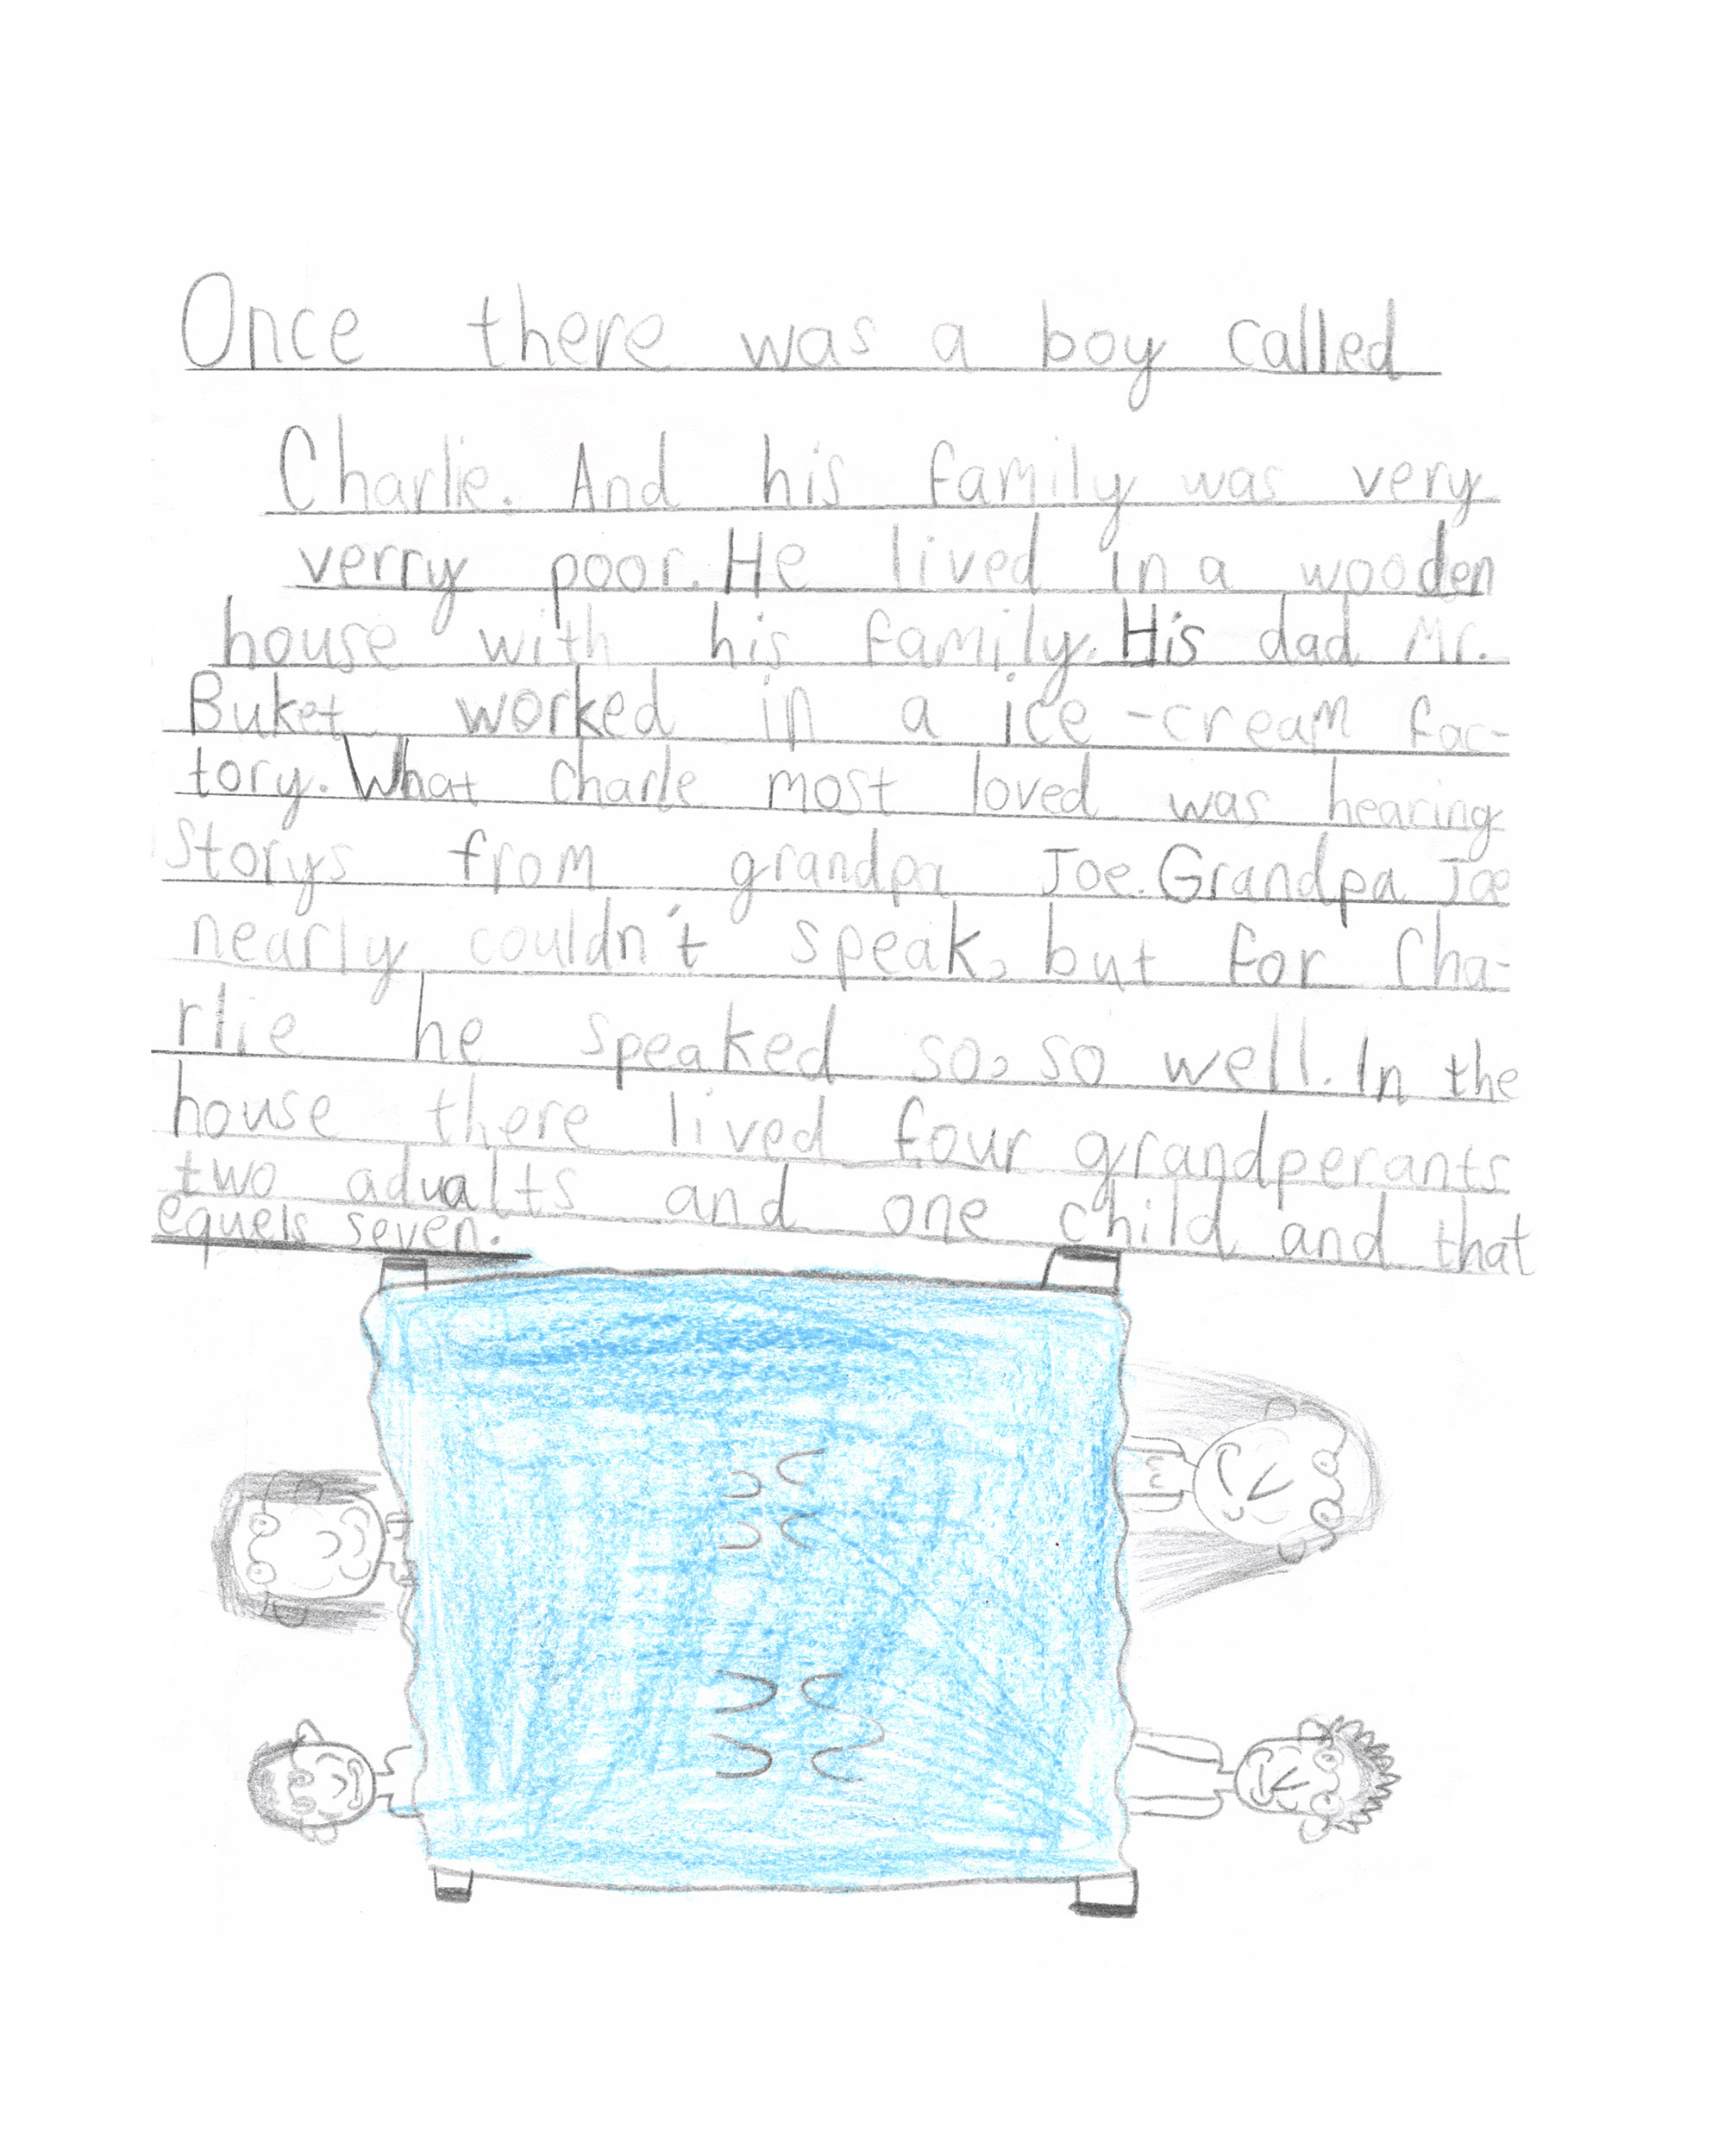 Once there was a boy called
Charlie. And his family was very
verry poor. He lived in a wooden
house with his family. His dad Mr.
Buket worked in a ice-cream fac-
tory. What Charle most loved was hearing
storys from grandpa Joe. Grandpa Joe
nearly couldn't speak, but for Cha-
rlie he speaked so, so well. In the
house there lived four grandperants
two adualts and one child and that
equels seven.